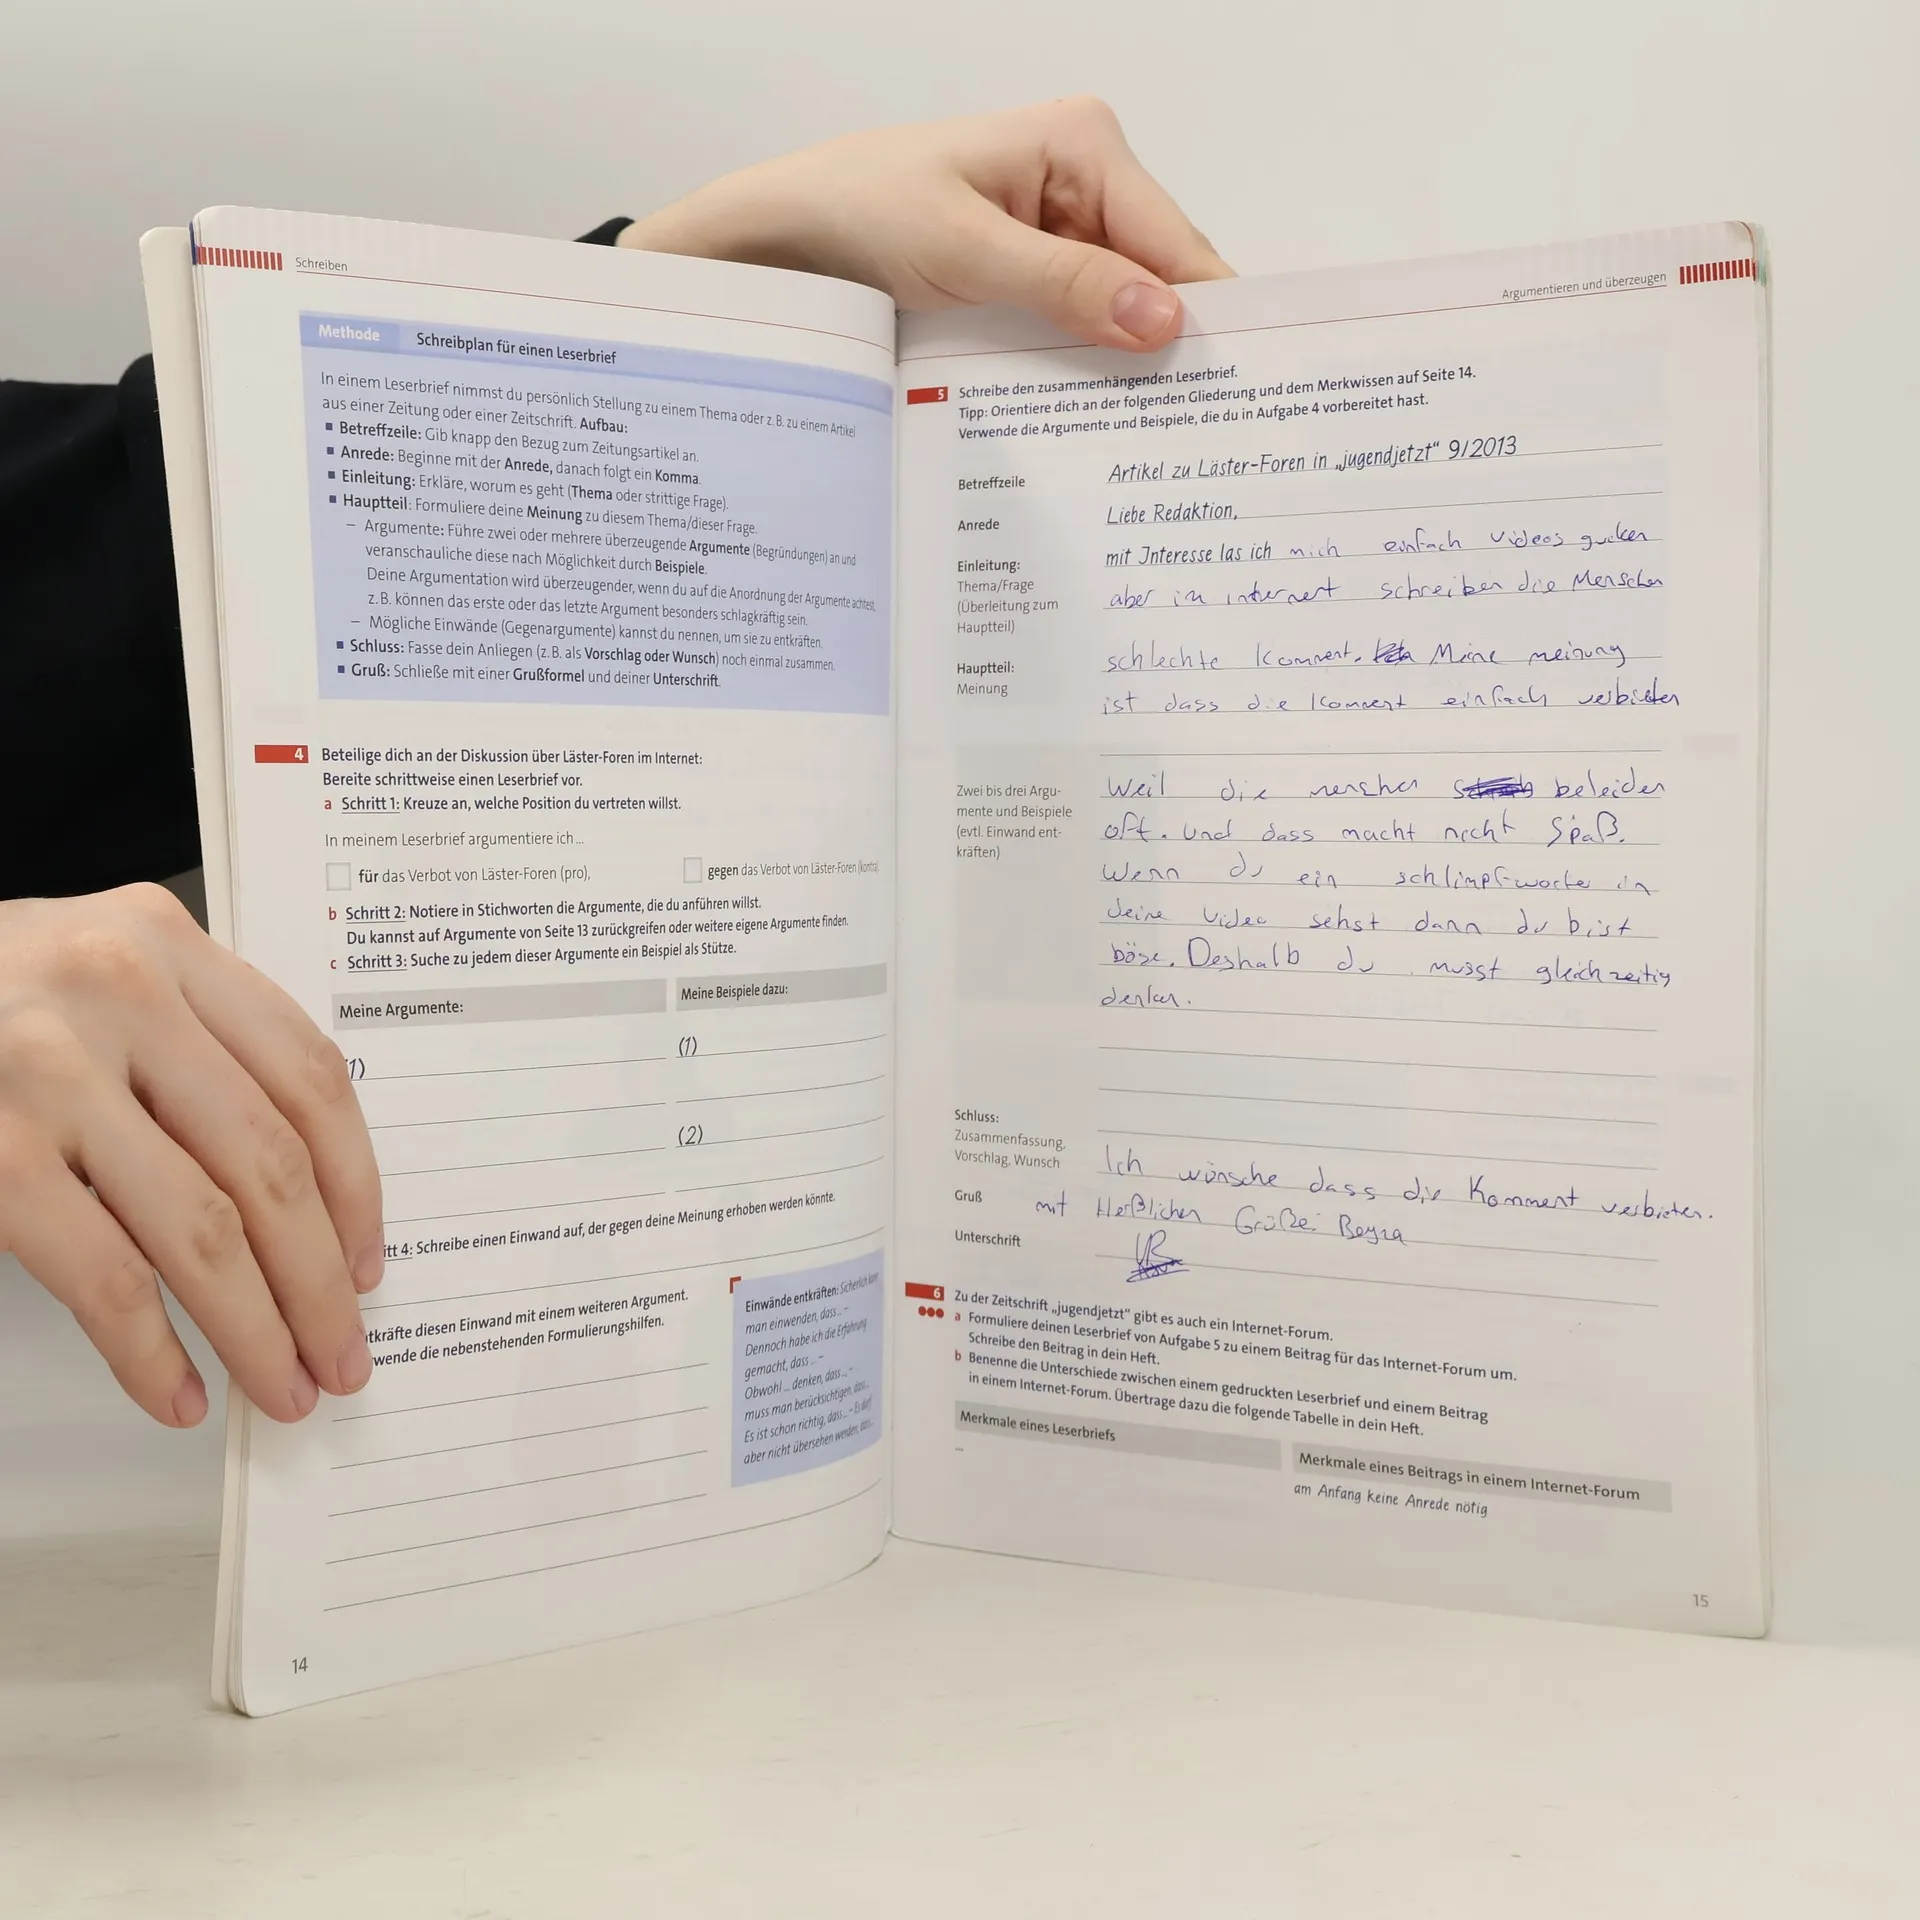 Schreiben
Methode Schreibplan für einen Leserbrief
In einem Leserbrief nimmst du persönlich Stellung zu einem Thema oder z. B. zu einem Artikel
aus einer Zeitung oder einer Zeitschrift. Aufbau:
▪ Betreffzeile: Gib knapp den Bezug zum Zeitungsartikel an.
▪ Anrede: Beginne mit der Anrede, danach folgt ein Komma.
▪ Einleitung: Erkläre, worum es geht (Thema oder strittige Frage).
▪ Hauptteil: Formuliere deine Meinung zu diesem Thema/dieser Frage.
– Argumente: Führe zwei oder mehrere überzeugende Argumente (Begründungen) an und
veranschauliche diese nach Möglichkeit durch Beispiele.
Deine Argumentation wird überzeugender, wenn du auf die Anordnung der Argumente achtest,
z. B. können das erste oder das letzte Argument besonders schlagkräftig sein.
– Mögliche Einwände (Gegenargumente) kannst du nennen, um sie zu entkräften.
▪ Schluss: Fasse dein Anliegen (z. B. als Vorschlag oder Wunsch) noch einmal zusammen.
▪ Gruß: Schließe mit einer Grußformel und deiner Unterschrift.
4 Beteilige dich an der Diskussion über Läster-Foren im Internet:
Bereite schrittweise einen Leserbrief vor.
a Schritt 1: Kreuze an, welche Position du vertreten willst.
In meinem Leserbrief argumentiere ich ...
für das Verbot von Läster-Foren (pro), gegen das Verbot von Läster-Foren (kontra)
b Schritt 2: Notiere in Stichworten die Argumente, die du anführen willst.
Du kannst auf Argumente von Seite 13 zurückgreifen oder weitere eigene Argumente finden.
c Schritt 3: Suche zu jedem dieser Argumente ein Beispiel als Stütze.
Meine Argumente: Meine Beispiele dazu:
1) (1)
(2)
itt 4: Schreibe einen Einwand auf, der gegen deine Meinung erhoben werden könnte.
tkräfte diesen Einwand mit einem weiteren Argument.
wende die nebenstehenden Formulierungshilfen.
Einwände entkräften: Sicherlich kann
man einwenden, dass ... –
Dennoch habe ich die Erfahrung
gemacht, dass ... –
Obwohl ... denken, dass ... –
muss man berücksichtigen, dass ...
Es ist schon richtig, dass ... – Es darf
aber nicht übersehen werden, dass ...
14
Argumentieren und überzeugen
5 Schreibe den zusammenhängenden Leserbrief.
Tipp: Orientiere dich an der folgenden Gliederung und dem Merkwissen auf Seite 14.
Verwende die Argumente und Beispiele, die du in Aufgabe 4 vorbereitet hast.
Betreffzeile Artikel zu Läster-Foren in „jugendjetzt“ 9/2013
Anrede Liebe Redaktion,
Einleitung: mit Interesse las ich mich einfach videos gucken
Thema/Frage
(Überleitung zum aber in internert schreiben die Menschen
Hauptteil)
Hauptteil: schlechte Komment. Meine meinung
Meinung ist dass die Komment einfach verbieten
Zwei bis drei Argu- Weil die menschen beleiden
mente und Beispiele
(evtl. Einwand ent- oft. und dass macht nicht Spaß.
kräften)
Wenn du ein schlimpfworter in
deine video sehst dann du bist
böse. Deshalb du musst gleichzeitig
denken.
Schluss:
Zusammenfassung,
Vorschlag, Wunsch Ich wünsche dass die Komment verbieten.
Gruß mit Herßlichen Grüße Beyza
Unterschrift
6 Zu der Zeitschrift „jugendjetzt“ gibt es auch ein Internet-Forum.
a Formuliere deinen Leserbrief von Aufgabe 5 zu einem Beitrag für das Internet-Forum um.
Schreibe den Beitrag in dein Heft.
b Benenne die Unterschiede zwischen einem gedruckten Leserbrief und einem Beitrag
in einem Internet-Forum. Übertrage dazu die folgende Tabelle in dein Heft.
Merkmale eines Leserbriefs Merkmale eines Beitrags in einem Internet-Forum
... am Anfang keine Anrede nötig
15